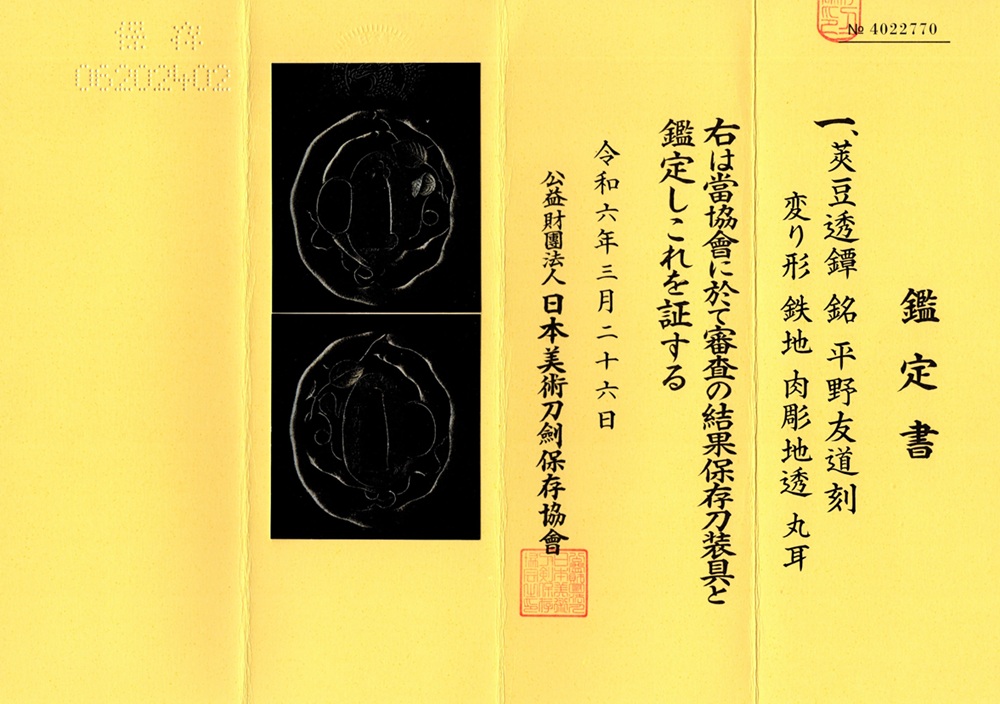 № 4022770
鑑定書
一、莢豆透鐔 銘 平野友道刻
変り形 鉄地 肉彫地透 丸耳
右は當協會に於て審査の結果保存刀装具と
鑑定しこれを証する
令和六年三月二十六日
公益財團法人 日本美術刀劍保存協會
保存
06202402